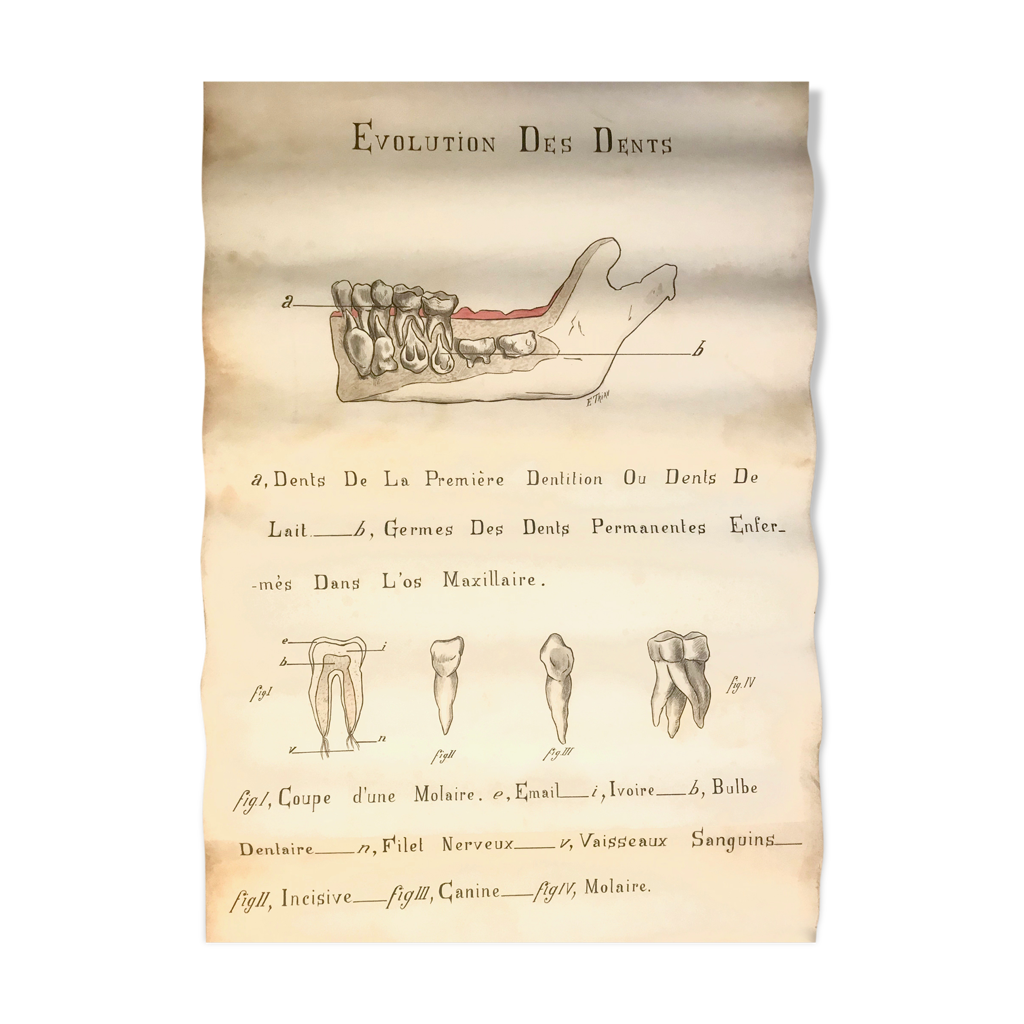 Evolution Des Dents
a
b
E.Thin
a, Dents De La Première Dentition Ou Dents De
Lait.__b, Germes Des Dents Permanentes Enfer_
-més Dans L'os Maxillaire.
e
i
b
fig I
n
v
fig II
fig III
fig. IV
fig I, Coupe d'une Molaire. e, Email__i, Ivoire__b, Bulbe
Dentaire__n, Filet Nerveux__v, Vaisseaux Sanguins__
fig II, Incisive__fig III, Canine__fig IV, Molaire.